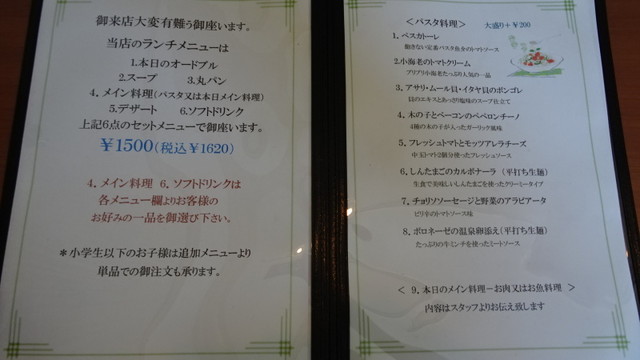 御来店大変有難う御座います。
当店のランチメニューは
1.本日のオードブル
2.スープ 3.丸パン
4. メイン料理(パスタ又は本日メイン料理)
5.デザート 6.ソフトドリンク
上記6点のセットメニューで御座います。
￥1500(税込￥1620)
4. メイン料理 6. ソフトドリンクは
各メニュー欄よりお客様の
お好みの一品を御選び下さい。
＊小学生以下のお子様は追加メニューより
単品での御注文も承ります。
＜パスタ料理＞ 大盛り＋￥200
1. ペスカトーレ
飽きない定番パスタ魚介のトマトソース
2.小海老のトマトクリーム
プリプリ小海老たっぷり人気の一品
3. アサリ・ムール貝・イタヤ貝のボンゴレ
貝のエキスとあっさり塩味のスープ仕立て
4. 木の子とベーコンのペペロンチーノ
4種の木の子が入ったガーリック風味
5. フレッシュトマトとモッツアレラチーズ
中玉トマト2個分使ったフレッシュソース
6. しんたまごのカルボナーラ （平打ち生麺）
生食で美味しいしんたまごを使ったクリーミータイプ
7. チョリソソーセージと野菜のアラビアータ
ピリ辛のトマトソース味
8. ボロネーゼの温泉卵添え(平打ち生麺)
たっぷりの牛ミンチを使ったミートソース
＜ 9. 本日のメイン料理－お肉又はお魚料理 ＞
内容はスタッフよりお伝え致します